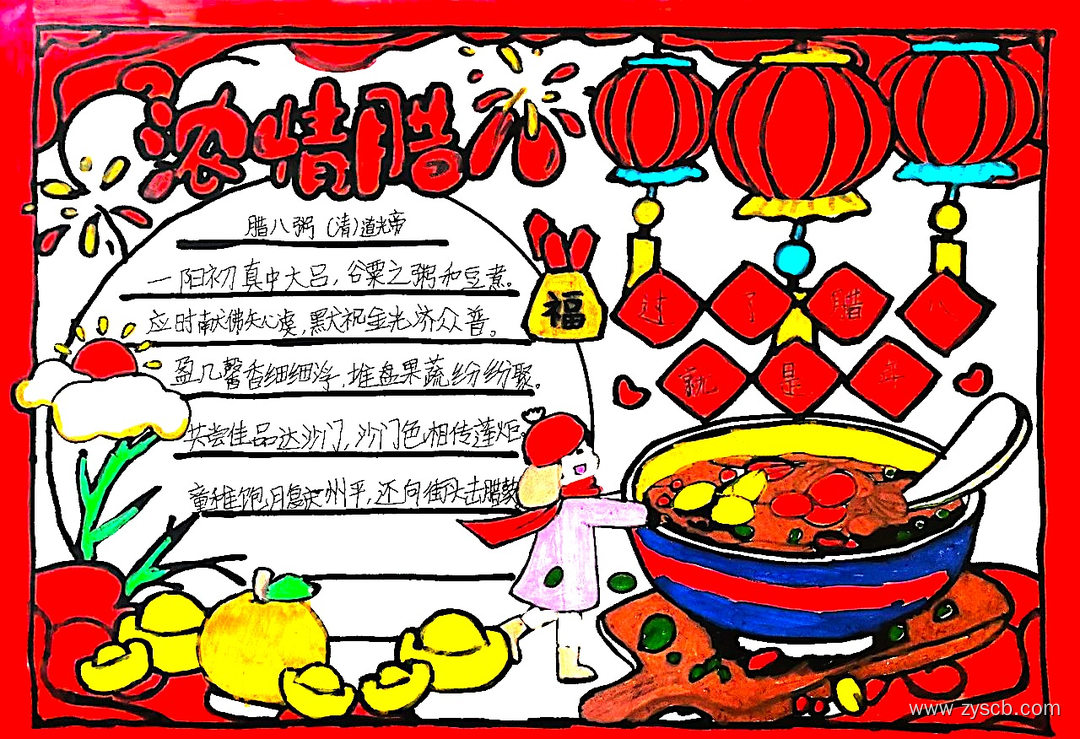 浓情腊八
腊八粥 (清)道光帝
一阳初真中大吕,谷粟之粥和豆煮。
应时献佛矢心虔,默祝金光济众普。
盈几馨香细细浮,堆盘果蔬纷纷聚。
共尝佳品达沙门,沙门色相传莲炬。
童稚饱腹州平,还向街头击腊鼓
福
过了腊八
就是年
www.zyscb.com